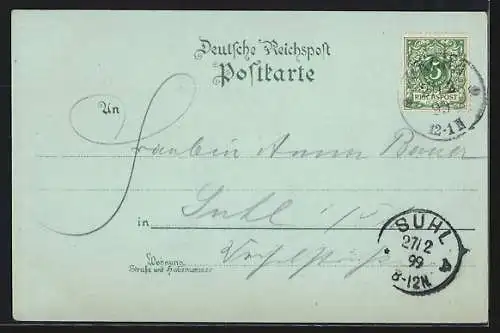 Deutsche Reichspost
Postkarte
5
REICHSPOST
99
12-1 N
An
Fräulein Anna Bauer
in Suhl i/
SUHL
27/2
99
8-12N.
Wohnung
Straße und Hausnummer